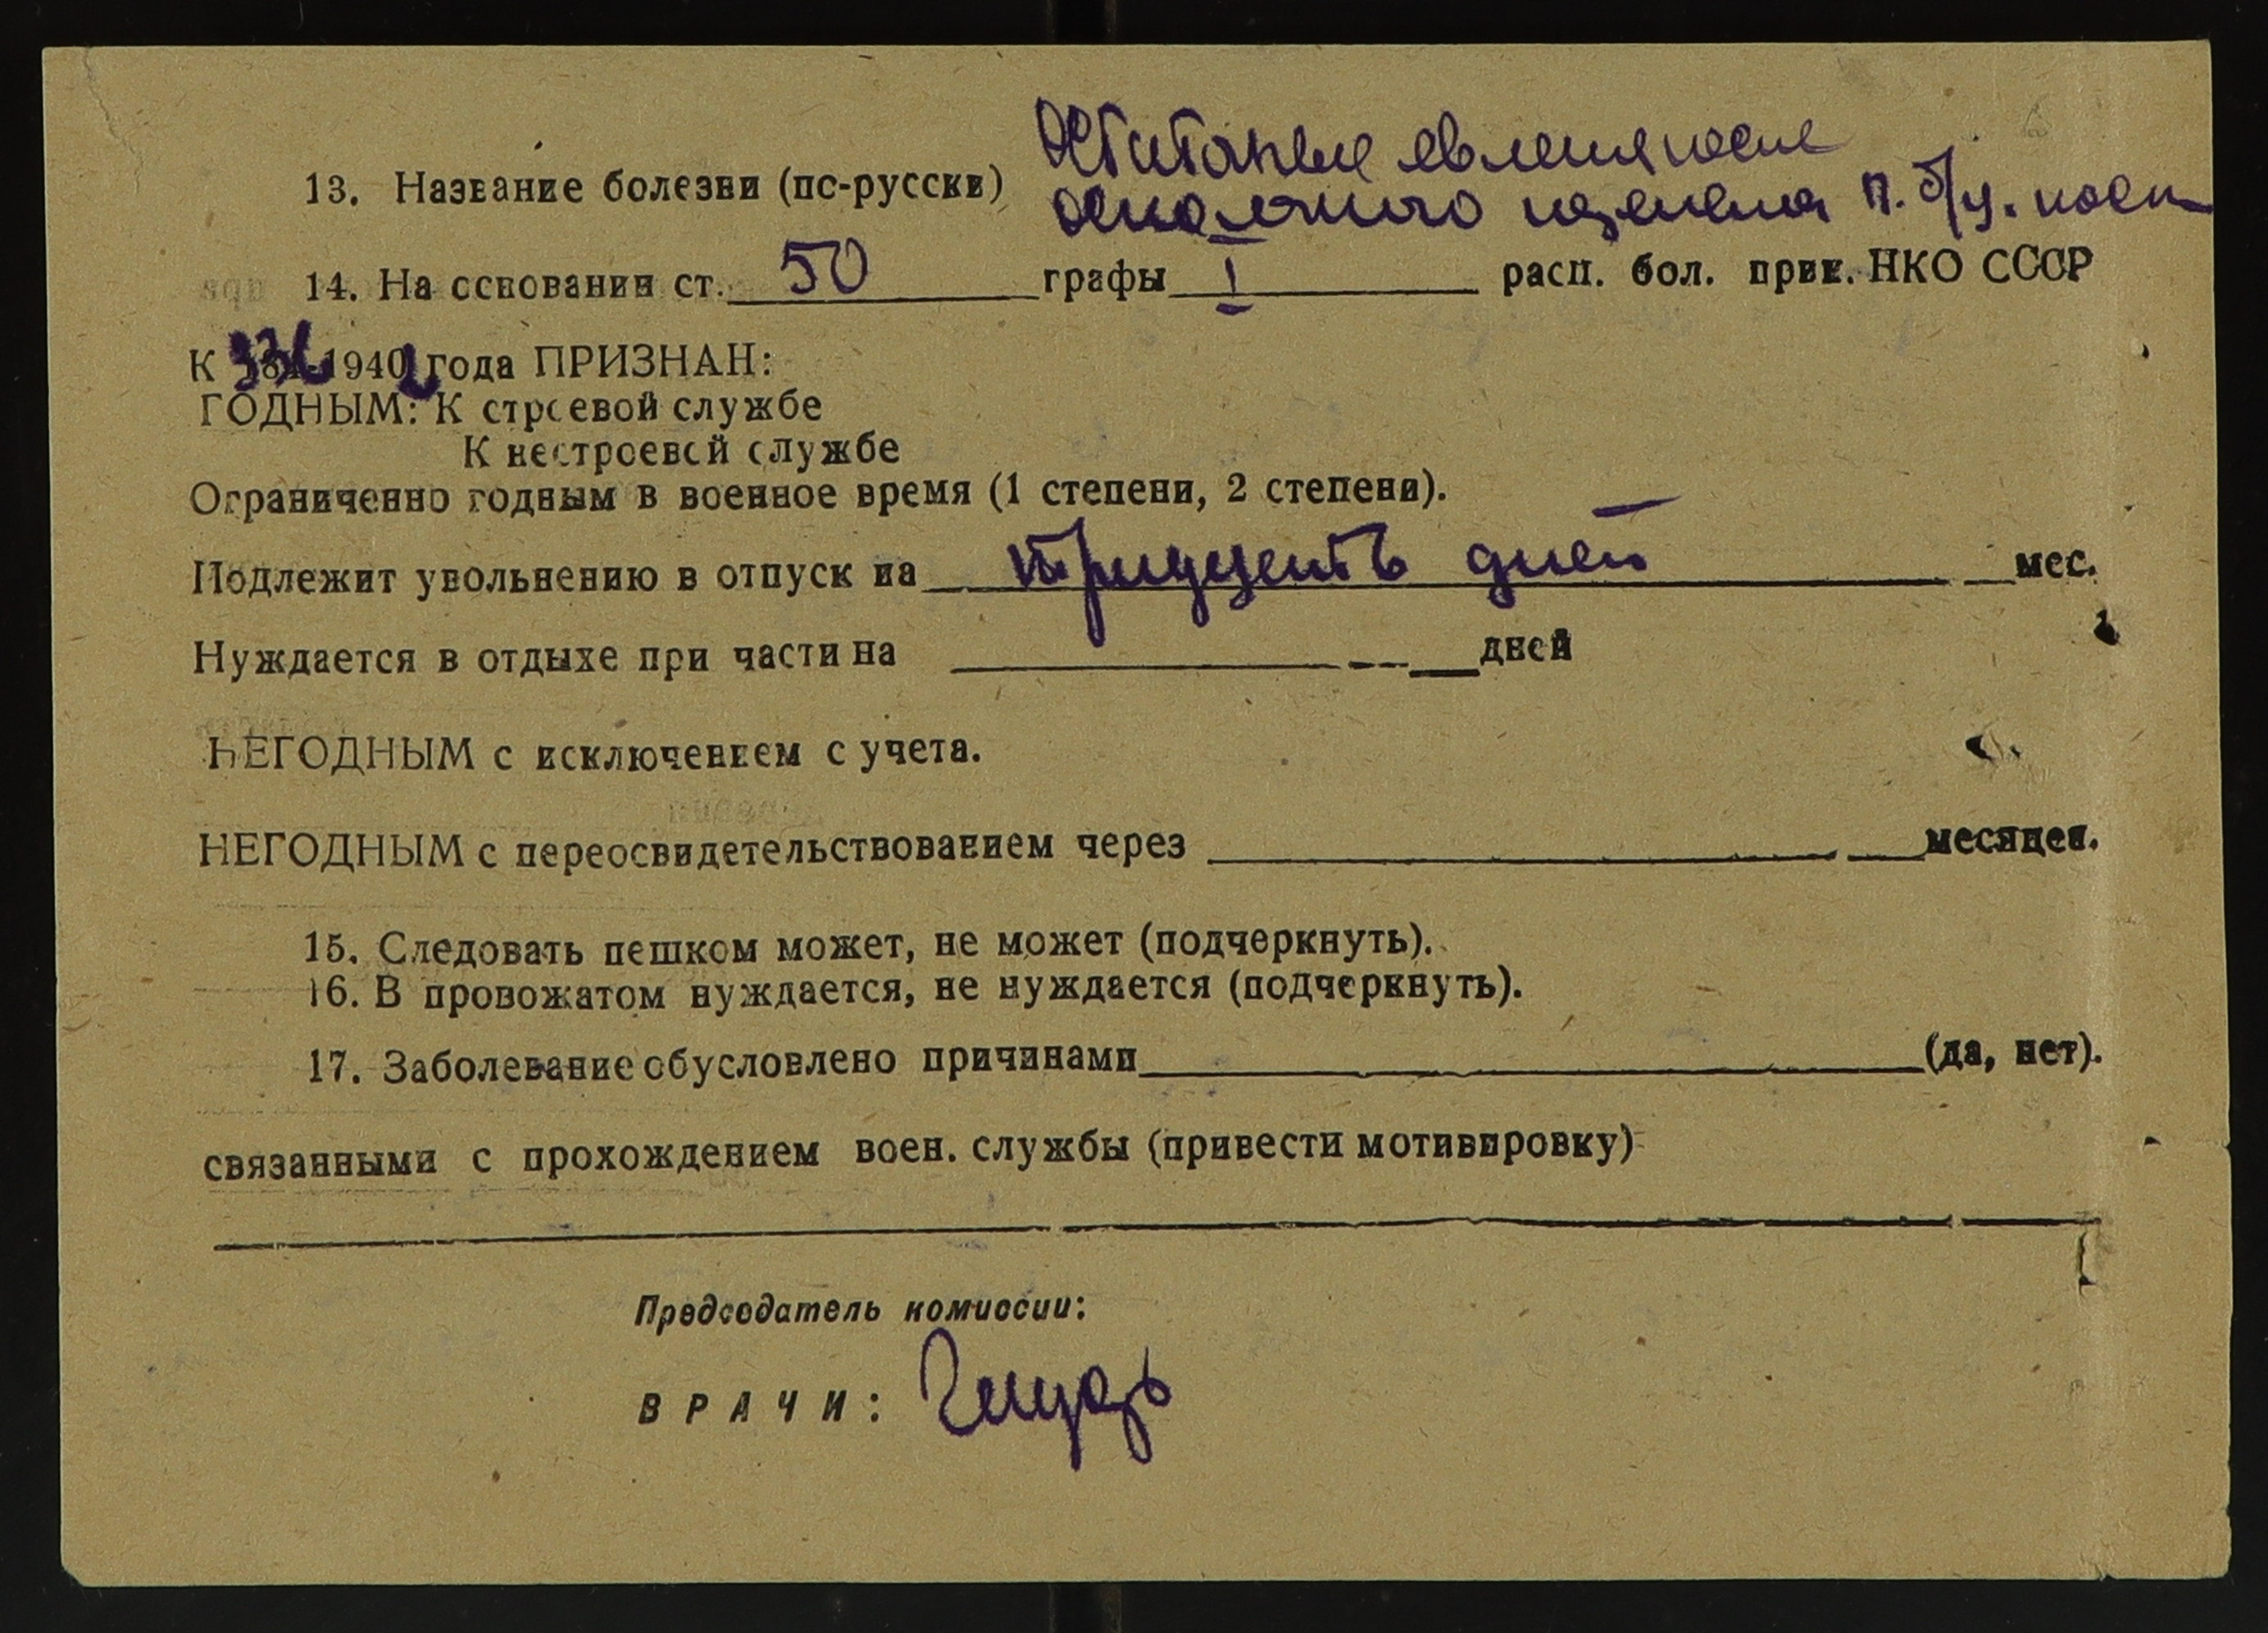 Остаточные явления после
13. Название болезни (по-русски) осколочного ранения п. б/ц. кости
14. На основании ст. 50 графы I расп. бол. прик. НКО СССР
К 336 1942 года ПРИЗНАН:
ГОДНЫМ: К строевой службе
К нестроевой службе
Ограниченно годным в военное время (1 степени, 2 степени).
Подлежит увольнению в отпуск на тридцать дней мес.
Нуждается в отдыхе при части на дней
НЕГОДНЫМ с исключением с учета.
НЕГОДНЫМ с переосвидетельствованием через месяцев.
15. Следовать пешком может, не может (подчеркнуть).
16. В провожатом нуждается, не нуждается (подчеркнуть).
17. Заболевание обусловлено причинами (да, нет).
связанными с прохождением воен. службы (привести мотивировку)
Председатель комиссии:
ВРАЧИ: